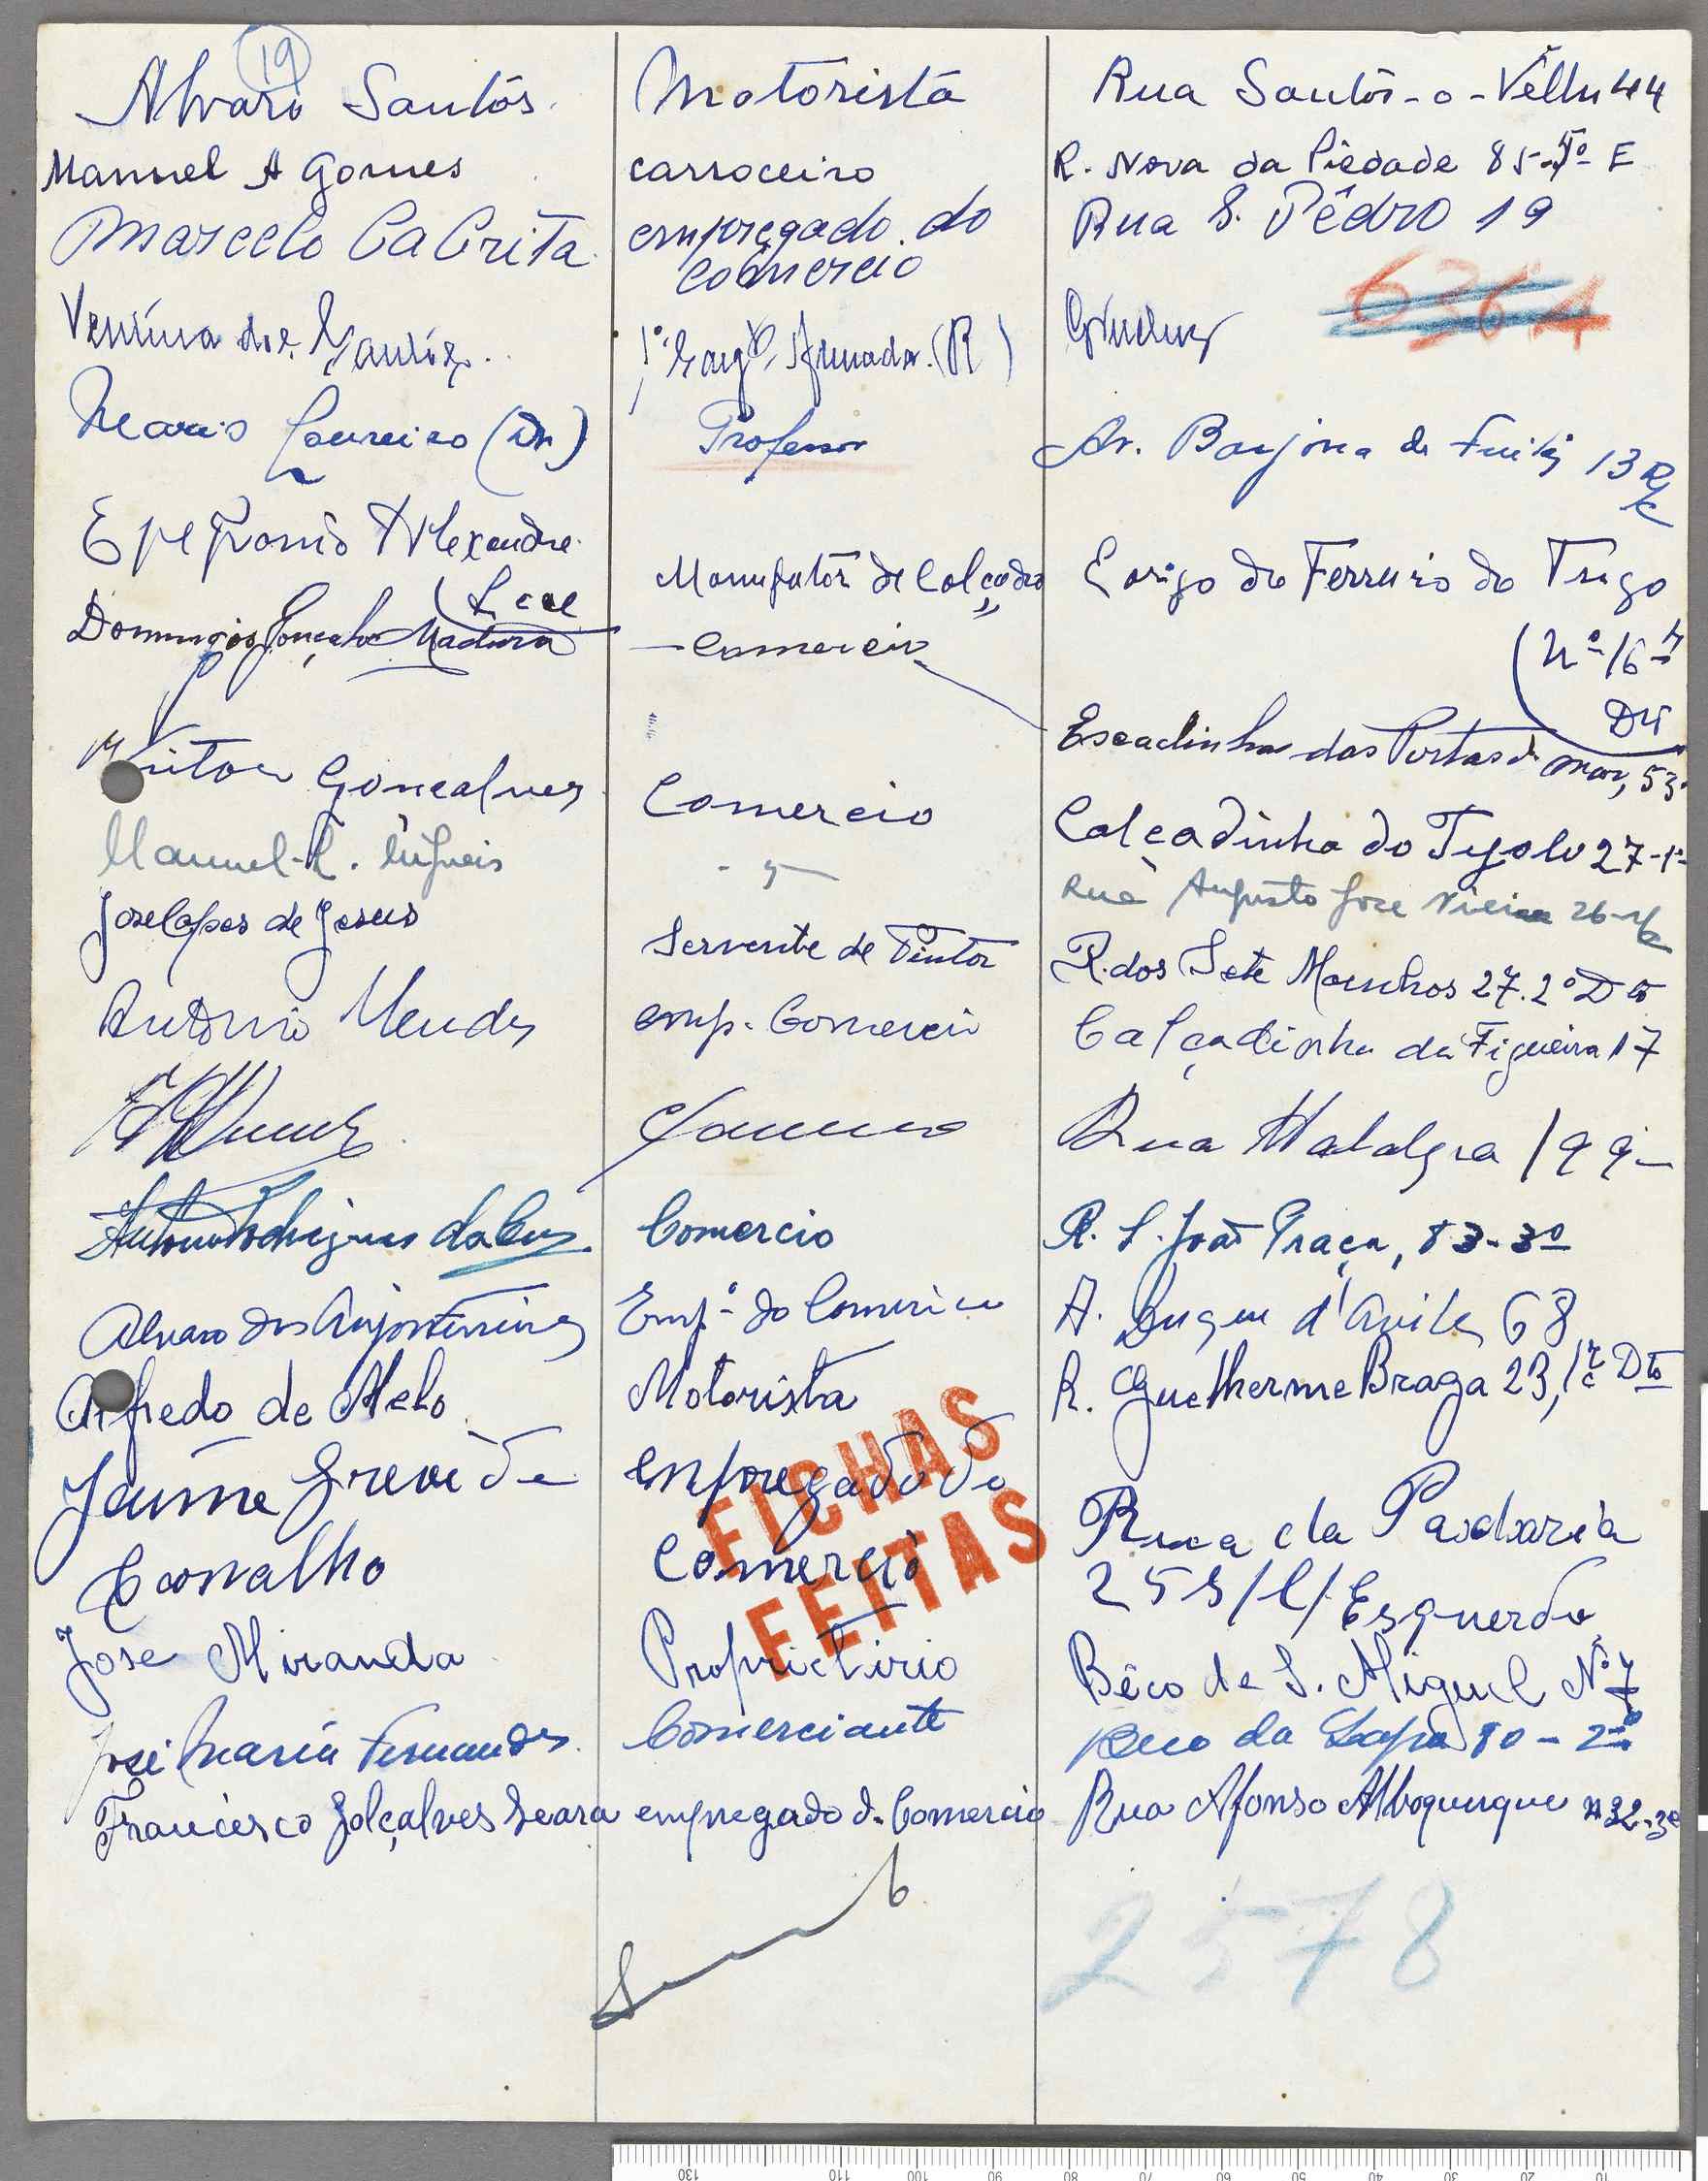 19
Alvaro Santos Motorista Rua Santos-o-Vélho 44
Manuel A Gomes carroceiro R. Nova da Piedade 85-4º E
Marcelo Cabrita empregado do Rua S. Pêdro 19
comercio
6364
Ventura dos Santos 1º Sargº Armada (R)
Loureiro (Dr) Professor Av. Barjona de Freitas 13 R/c
Alexandre
Leal Manufator de Calçado Largo do Ferreiro do Trigo
(Nº 16
Dtº
Domingos Gonçalves Madura - Comercio Escadinhas das Portas do Mar, 53
Vitor Gonçalves Comercio Calçadinha do Tijolo 27-1º
Manuel R. - " - Rua Augusto José Vieira 26-r/c
Jose Lopes de Jesus Servente de Pintor R. dos Sete Moinhos 27. 2º Dto
Antonio Mendes emp. Comercio Calçadinha da Figueira 17
Rua
Antonio Rodrigues da Cruz Comercio R. S. João Praça, 83-3º
Alvaro dos Anjos Empº do Comercio A. Duque d'Avila 68
Alfredo de Melo Motorista R. Guelherme Braga 23, r/c Dto
Jaime empregado do Rua da Padaria
Carvalho Comercio 25 S/L/Esquerdo
FICHAS
FEITAS
Jose Miranda Propriétario Bêco de S. Miguel Nº 7
José Maria Fernandes Comerciante Beco da Lapa 80-2º
Francisco Golçalves Seara empregado do Comercio Rua Afonso Alboquerque nº 32-3º
2578
130 110 100 90 80 70 60 50 40 30 20 10